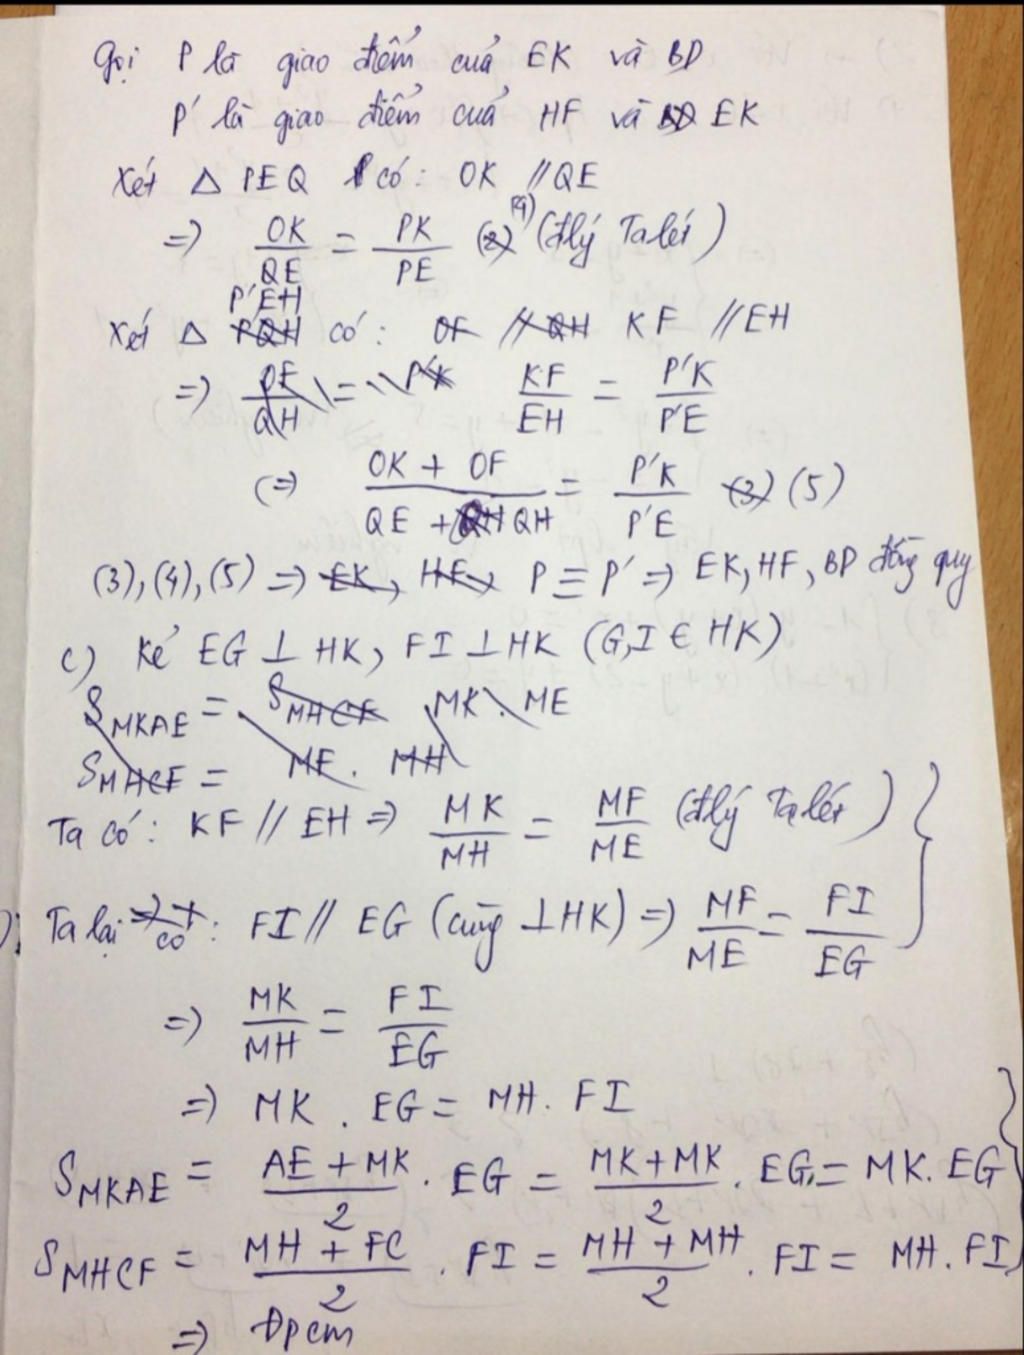 Gọi P là giao điểm của EK và BD
P' là giao điểm của HF và EK
Xét △ PEQ có: OK // QE
=> OK/QE = PK/PE (4) (đlý Talét)
Xét △ P'EH có: KF // EH
=> KF/EH = P'K/P'E
(=> (OK + OF)/(QE + QH) = P'K/P'E (5)
(3), (4), (5) => P ≡ P' => EK, HF, BD đồng quy
c) Kẻ EG ⊥ HK, FI ⊥ HK (G, I ∈ HK)
S MKAE = S MHCF MK . ME
S MHCF = MF . MH
Ta có: KF // EH => MK/MH = MF/ME (đlý Talét)
Ta lại có: FI // EG (cùng ⊥ HK) => MF/ME = FI/EG
=> MK/MH = FI/EG
=> MK . EG = MH . FI
S MKAE = (AE + MK)/2 . EG = (MK + MK)/2 . EG = MK . EG
S MHCF = (MH + FC)/2 . FI = (MH + MH)/2 . FI = MH . FI
=> Đpcm